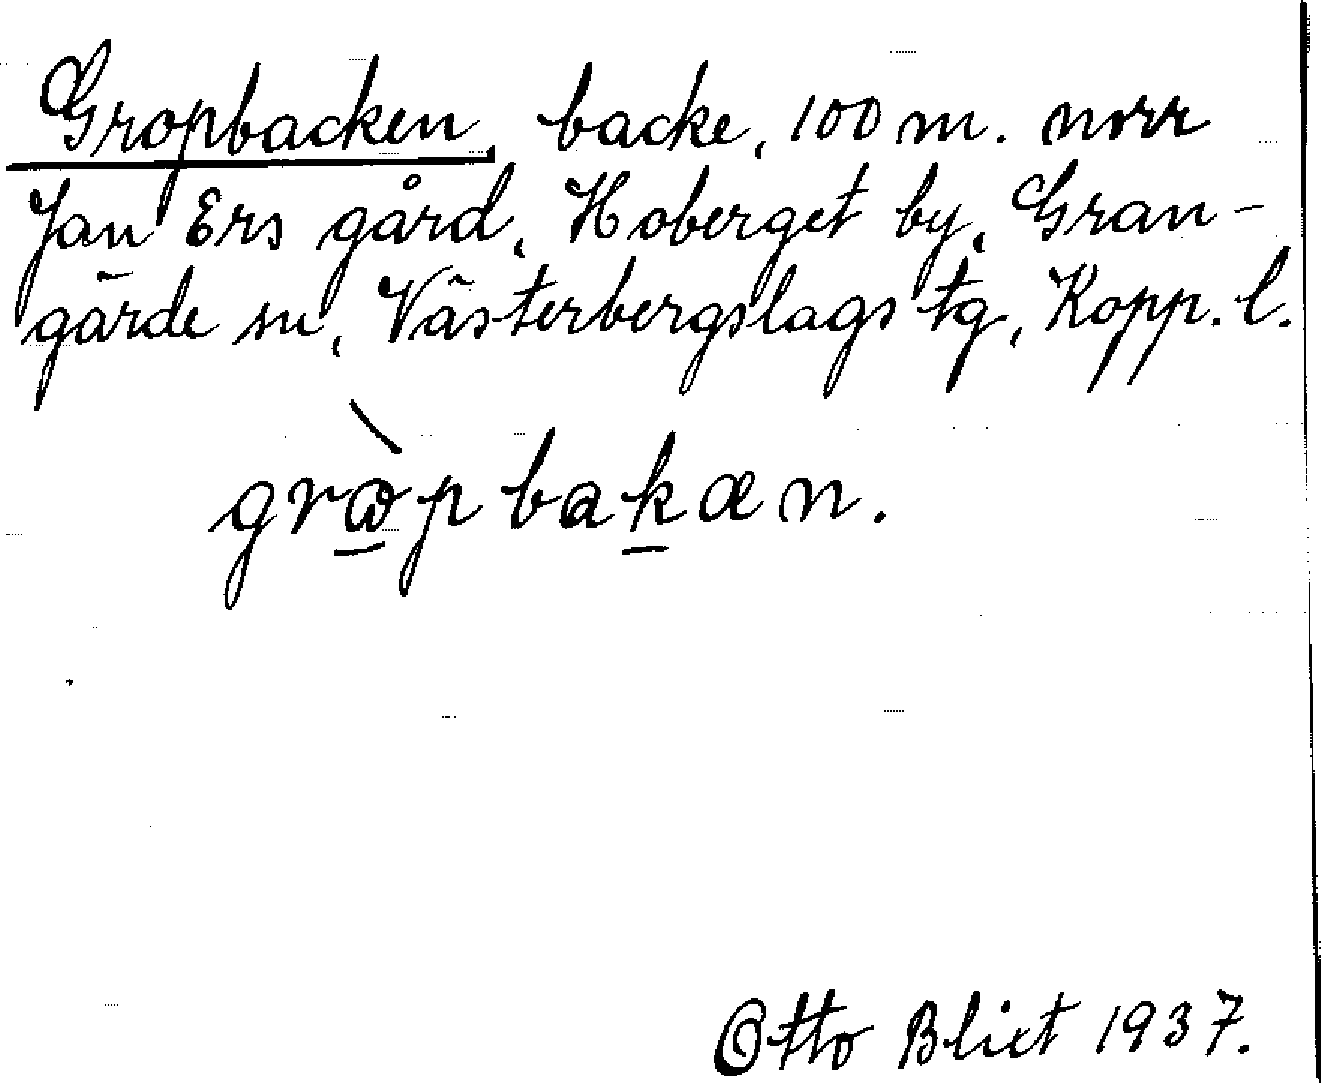 Gropbacken, backe, 100 m. norr
Jan Ers gård, Hoberget by, Gran-
gärde sn, Västerbergslags tg, Kopp. l.
grὼpbakæn.
Otto Blixt 1937.